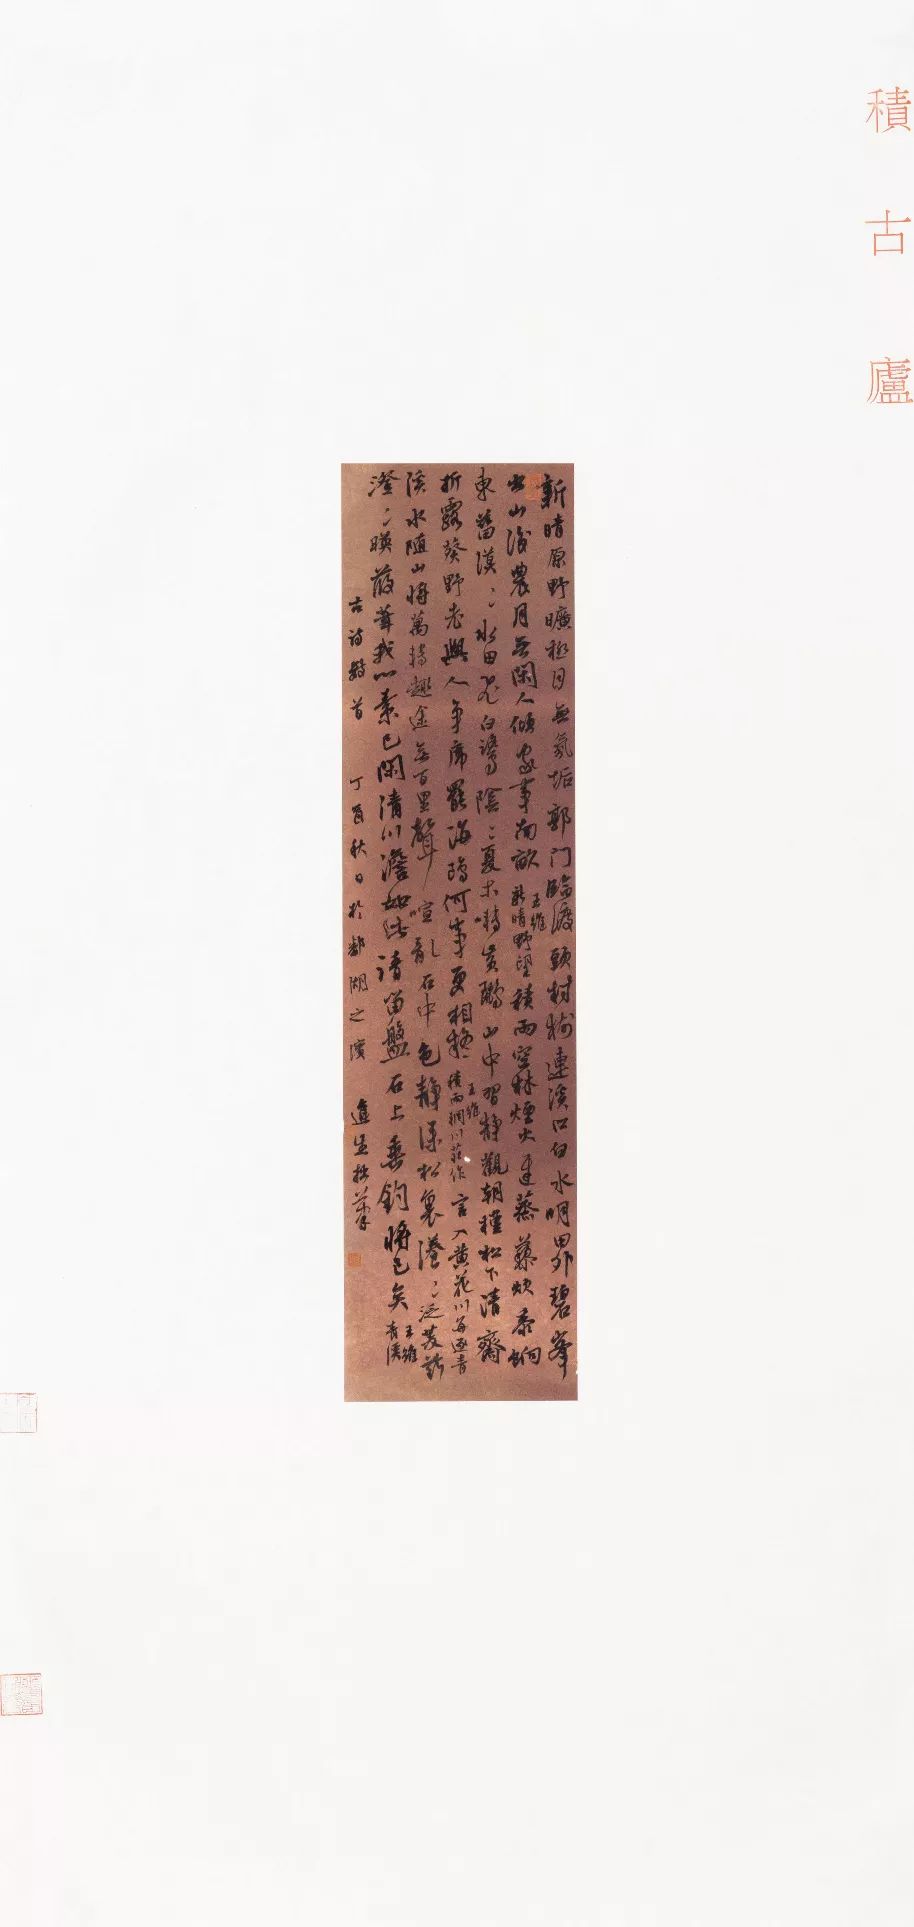 積古廬
新晴原野曠極目無氛垢郭門臨渡頭村樹連溪口白水明田外碧峯
出山後農月無閑人傾家事南畝 王維新晴野望 積雨空林煙火遲蒸藜炊黍餉
東菑漠〻水田飛白鷺陰〻夏木囀黃鸝山中習靜觀朝槿松下清齋
折露葵野老與人爭席罷海鷗何事更相疑 王維積雨輞川莊作 言入黃花川每逐青
溪水隨山將萬轉趣途無百里聲喧亂石中色靜深松裏漾〻泛菱荇
澄〻暎葭葦我心素已閑清川澹如此請留盤石上垂釣將已矣 王維青溪
古詩數首 丁酉秋日於鄱湖之濱 生拙筆